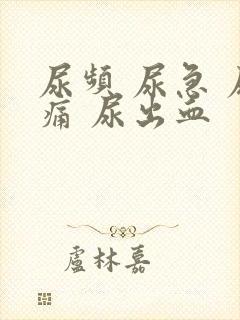 尿頻 尿急 尿
痛 尿出血
盧林嘉